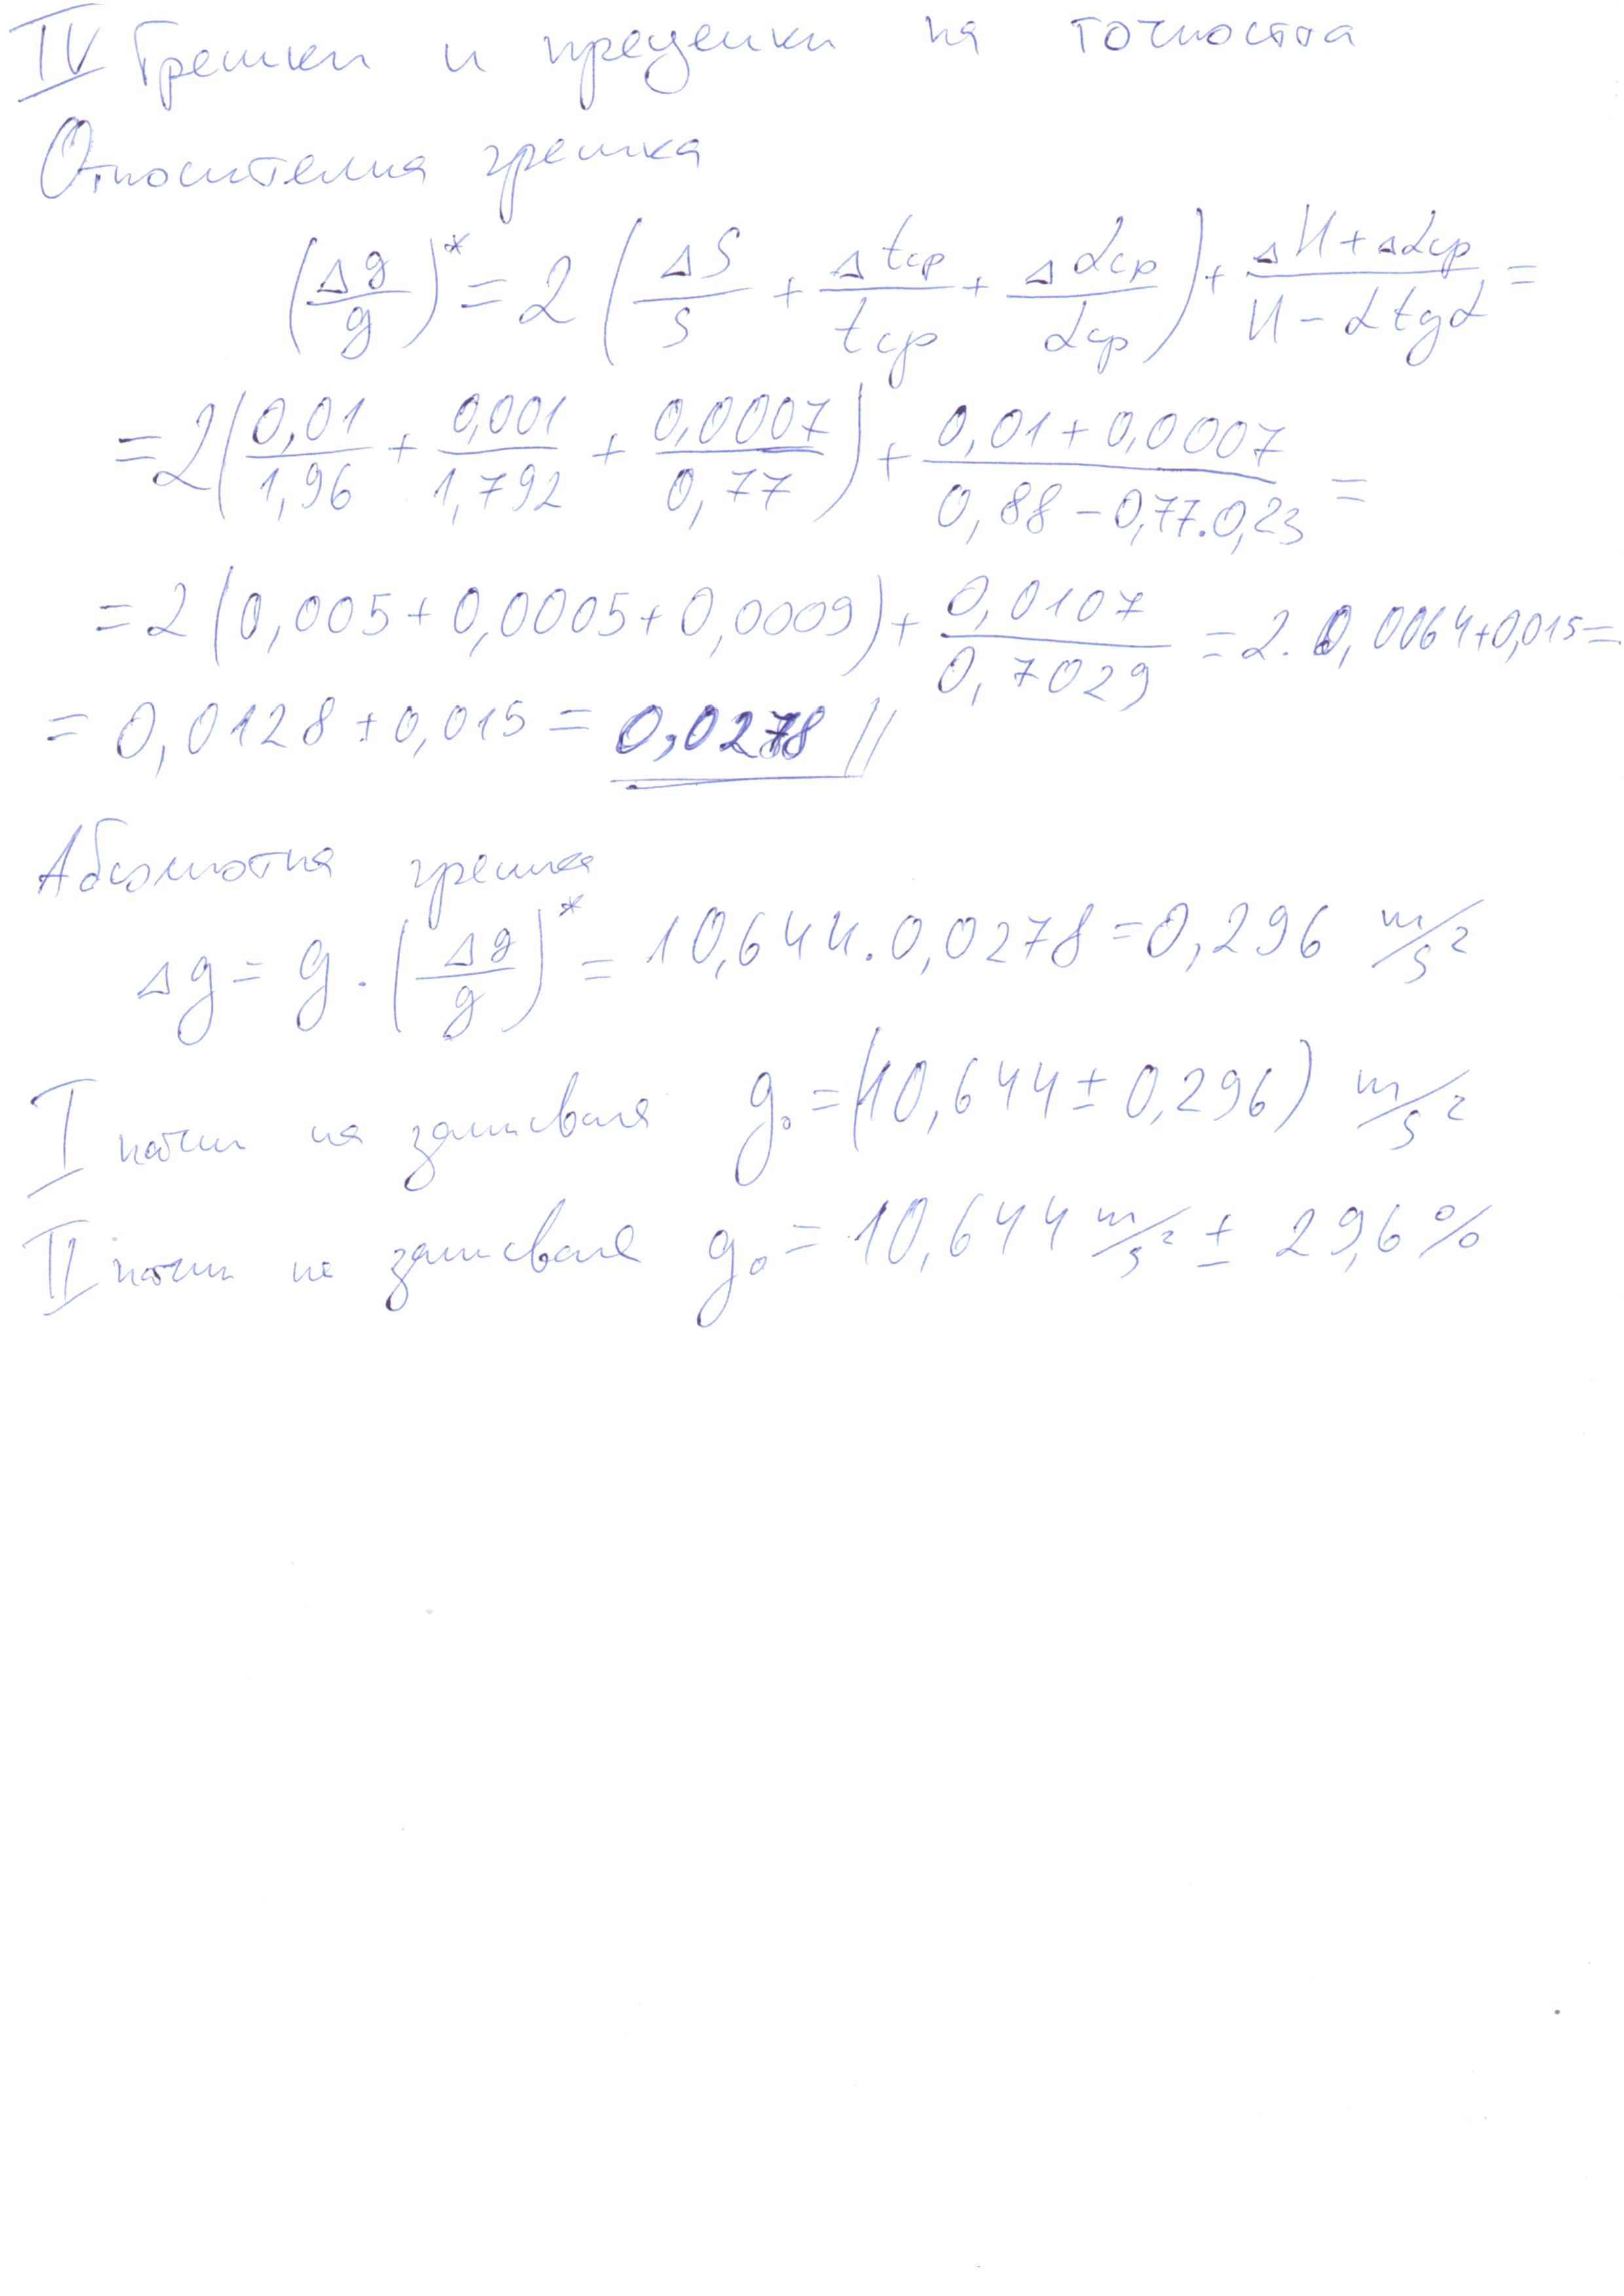 IV Грешки и преценки на точността
Относителна грешка
(Δg/g)* = 2 (ΔS/S + Δtср/tср + Δdср/dср) + (ΔH + Δdср)/(H - d tgα) =
= 2 (0,01/1,96 + 0,001/1,792 + 0,0007/0,77) + (0,01 + 0,0007)/(0,88 - 0,77.0,23) =
= 2 (0,005 + 0,0005 + 0,0009) + 0,0107/0,7029 = 2. 0,0064 + 0,015 =
= 0,0128 + 0,015 = 0,0278 //
Абсолютна грешка
Δg = g . (Δg/g)* = 10,644 . 0,0278 = 0,296 m/s²
I начин на записване g₀ = (10,644 ± 0,296) m/s²
II начин на записване g₀ = 10,644 m/s² ± 29,6 %